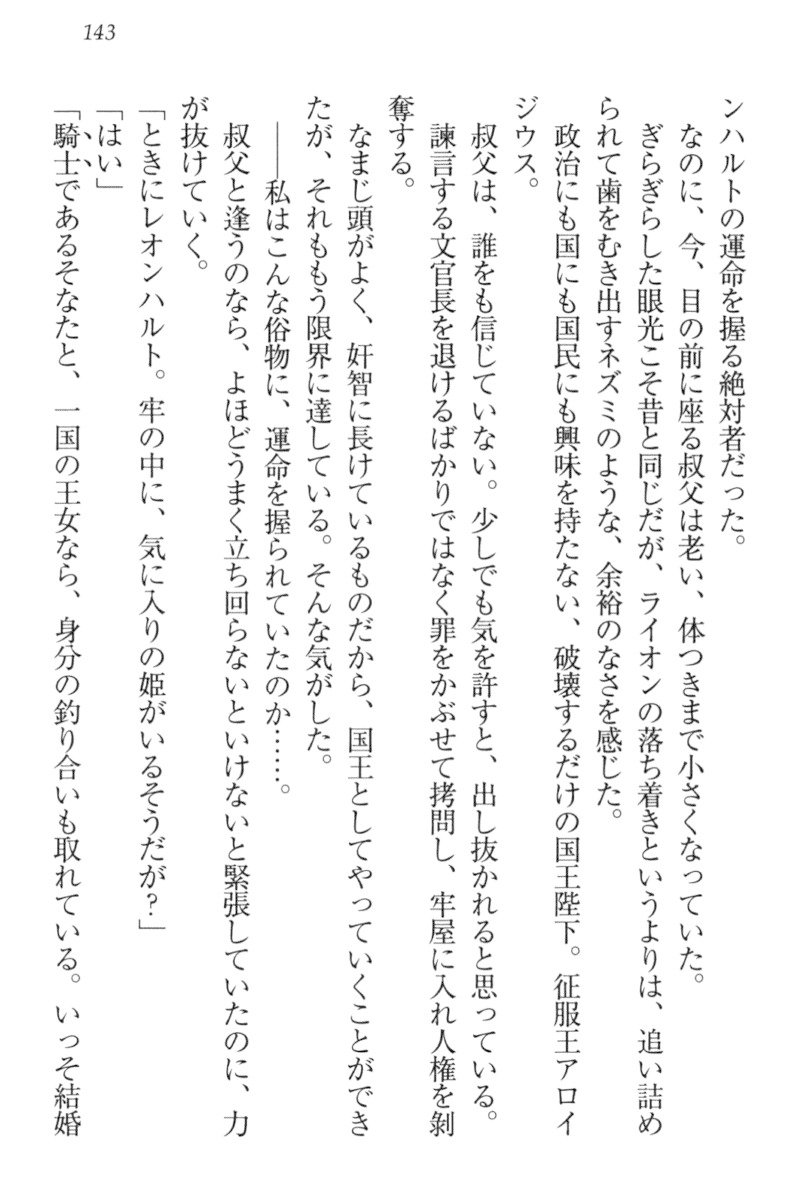 143
ンハルトの運命を握る絶対者だった。
なのに、今、目の前に座る叔父は老い、体つきまで小さくなっていた。
ぎらぎらした眼光こそ昔と同じだが、ライオンの落ち着きというよりは、追い詰め
られて歯をむき出すネズミのような、余裕のなさを感じた。
政治にも国にも国民にも興味を持たない、破壊するだけの国王陛下。征服王アロイ
ジウス。
叔父は、誰をも信じていない。少しでも気を許すと、出し抜かれると思っている。
諫言する文官長を退けるばかりではなく罪をかぶせて拷問し、牢屋に入れ人権を剝
奪する。
なまじ頭がよく、奸智に長けているものだから、国王としてやっていくことができ
たが、それももう限界に達している。そんな気がした。
――私はこんな俗物に、運命を握られていたのか……。
叔父と逢うのなら、よほどうまく立ち回らないといけないと緊張していたのに、力
が抜けていく。
「ときにレオンハルト。牢の中に、気に入りの姫がいるそうだが？」
「はい」
「騎士であるそなたと、一国の王女なら、身分の釣り合いも取れている。いっそ結婚